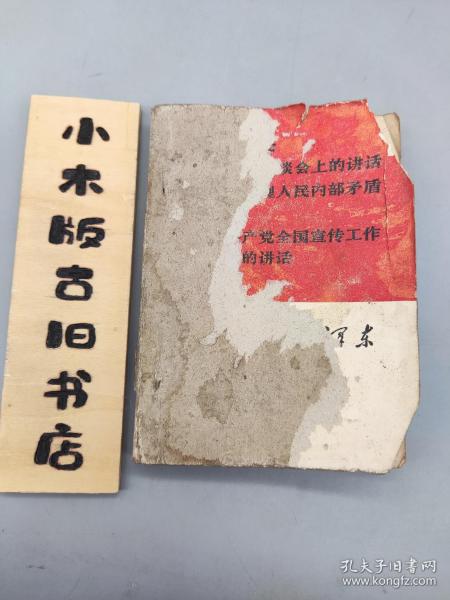 小木版古旧书店
谈会上的讲话
人民内部矛盾
产党全国宣传工作
的讲话
泽东
孔夫子旧书网
www.kongfz.com